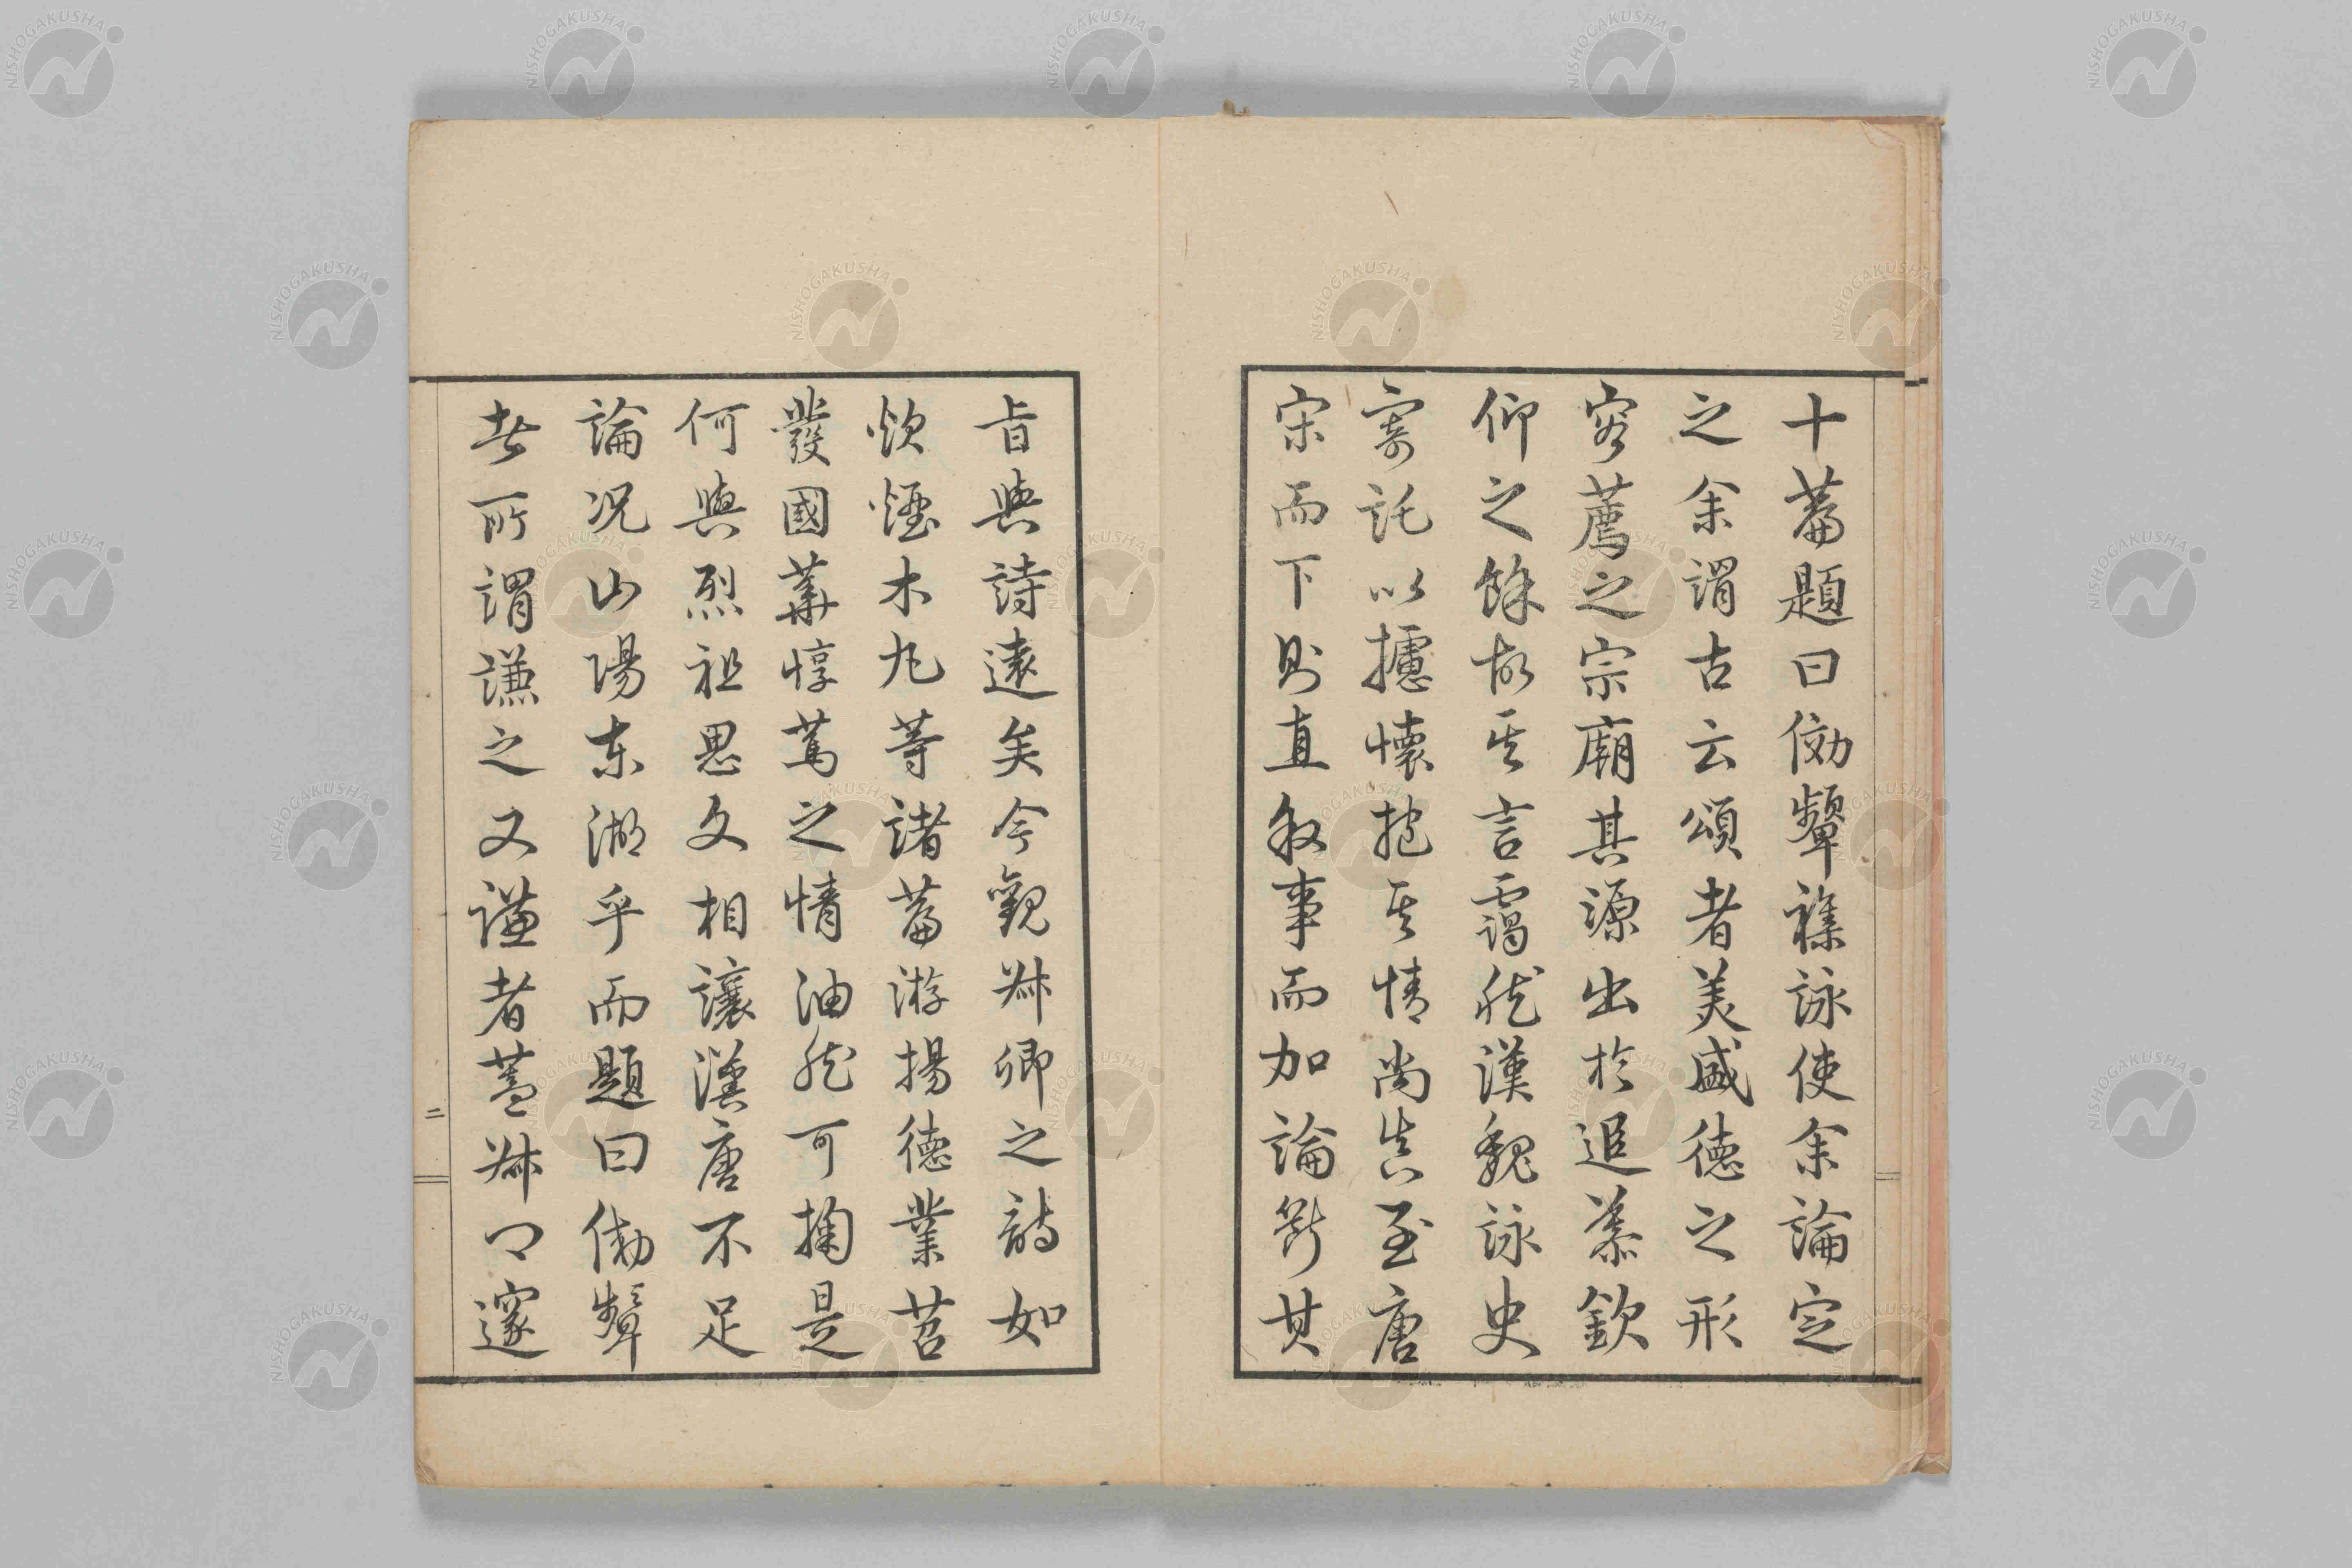 十篇題曰傚顰襍詠使余論定
之余謂古云頌者美盛德之形
容薦之宗廟其源出於追慕欽
仰之餘故其言靄然漢魏詠史
寄託以攄懷抱其情尚真至唐
宋而下則直叙事而加論斷其
旨與詩遠矣今觀叔卿之詩如
欣煙木丸等諸篇游揚德業苕
發國華惇篤之情油然可掬是
何與烈祖思文相讓漢唐不足
論况山陽東湖乎而題曰傚顰
者所謂謙之又謙者蓋叔卿邃
二
NISHOGAKUSHA